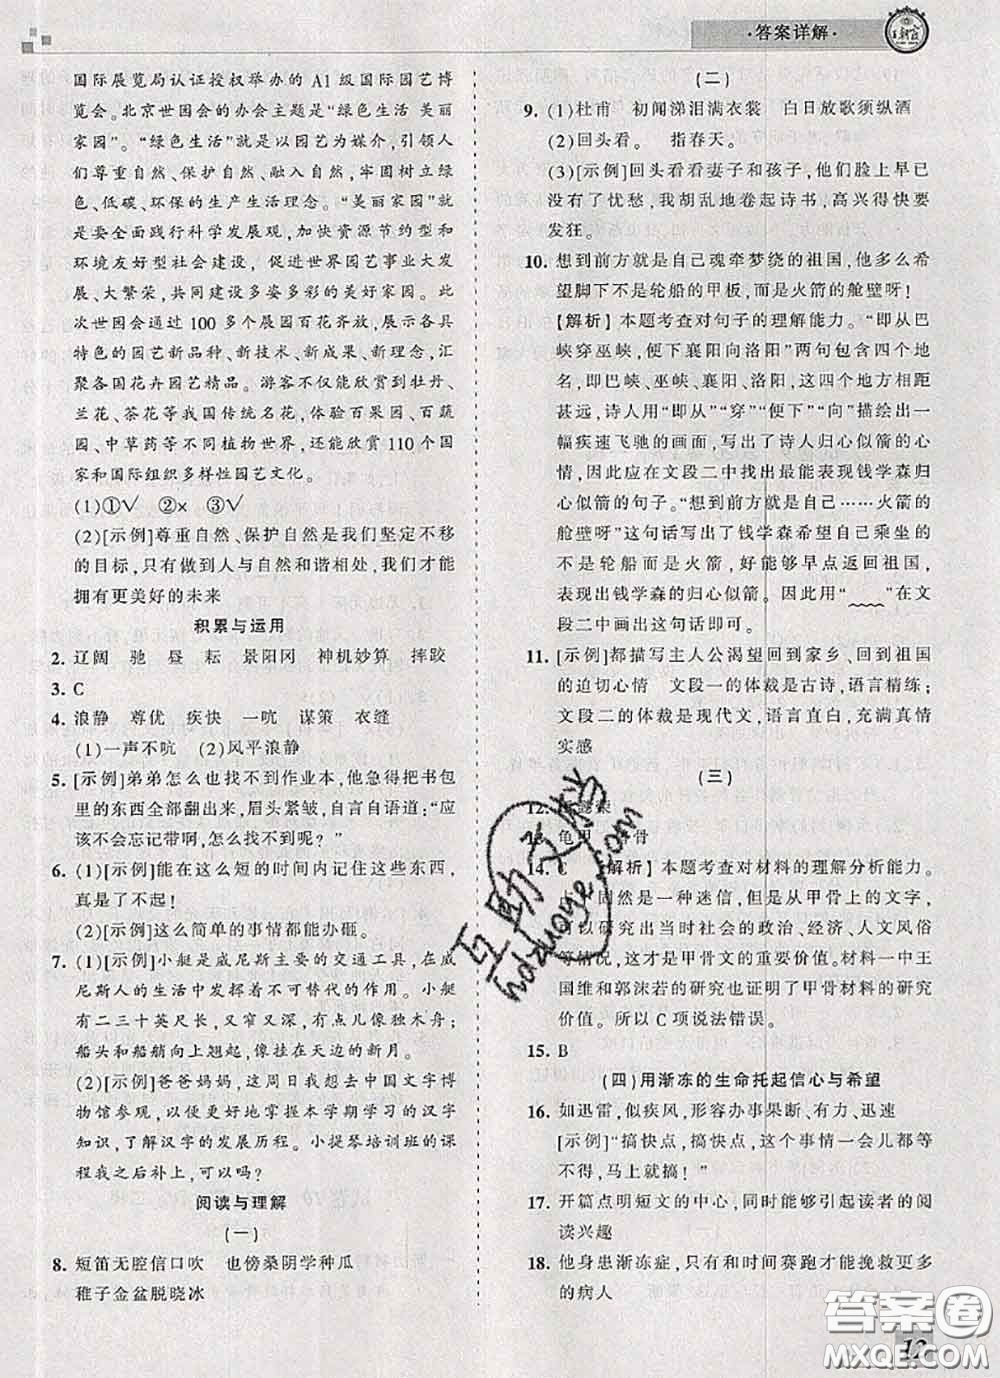 ·答案详解·
王朝霞
国际展览局认证授权举办的 A1 级国际园艺博
览会。北京世园会的办会主题是“绿色生活 美丽
家园”。“绿色生活”就是以园艺为媒介,引领人
们尊重自然、保护自然、融入自然,牢固树立绿
色、低碳、环保的生产生活理念。“美丽家园”就
是要全面践行科学发展观,加快资源节约型和
环境友好型社会建设,促进世界园艺事业大发
展、大繁荣,共同建设多姿多彩的美好家园。此
次世园会通过 100 多个展园百花齐放,展示各具
特色的园艺新品种、新技术、新成果、新理念,汇
聚各国花卉园艺精品。游客不仅能欣赏到牡丹、
兰花、茶花等我国传统名花,体验百果园、百蔬
园、中草药等不同植物世界,还能欣赏 110 个国
家和国际组织多样性园艺文化。
(1)①√ ②× ③√
(2)[示例]尊重自然、保护自然是我们坚定不移
的目标,只有做到人与自然和谐相处,我们才能
拥有更美好的未来
积累与运用
2. 辽阔 驰 昼 耘 景阳冈 神机妙算 摔跤
3. C
4. 浪静 尊优 疾快 一吭 谋策 衣缝
(1)一声不吭 (2)风平浪静
5. [示例]弟弟怎么也找不到作业本,他急得把书包
里的东西全部翻出来,眉头紧皱,自言自语道:“应
该不会忘记带啊,怎么找不到呢?”
6. (1)[示例]能在这么短的时间内记住这些东西,
真是了不起!
(2)[示例]这么简单的事情都能办砸。
7. (1)[示例]小艇是威尼斯主要的交通工具,在威
尼斯人的生活中发挥着不可替代的作用。小艇
有二三十英尺长,又窄又深,有点像独木舟;
船头和船艄向上翘起,像挂在天边的新月。
(2)[示例]爸爸妈妈,这周日我想去中国文字博
物馆参观,以便更好地掌握本学期学习的汉字
知识,了解汉字的发展历程。小提琴培训班的课
程我之后补上,可以吗?
阅读与理解
(一)
8. 短笛无腔信口吹 也傍桑阴学种瓜
稚子金盆脱晓冰
(二)
9. (1)杜甫 初闻涕泪满衣裳 白日放歌须纵酒
(2)回头看。 指春天。
(3)[示例]回头看看妻子和孩子,他们脸上早已
没有了忧愁,我胡乱地卷起诗书,高兴得快要
发狂。
10. 想到前方就是自己魂牵梦绕的祖国,他多么希
望脚下不是轮船的甲板,而是火箭的舱壁呀!
[解析] 本题考查对句子的理解能力。“即从巴
峡穿巫峡,便下襄阳向洛阳”两句包含四个地
名,即巴峡、巫峡、襄阳、洛阳,这四个地方相距
甚远,诗人用“即从”“穿”“便下”“向”描绘出一
幅疾速飞驰的画面,写出了诗人归心似箭的心
情,因此应在文段二中找出最能表现钱学森归
心似箭的句子。“想到前方就是自己……火箭的
舱壁呀”这句话写出了钱学森希望自己乘坐的
不是轮船而是火箭,希望能够早点返回祖国,
表现出钱学森的归心似箭。因此用“﹏﹏”在文
段二中画出这句话即可。
11. [示例]都描写主人公渴望回到家乡、回到祖国
的迫切心情 文段一的体裁是古诗,语言精练;
文段二的体裁是现代文,语言直白,充满真情
实感
(三)
12. 懿荣
13. 龟甲 骨
14. C [解析] 本题考查对材料的理解分析能力。
固然是一种迷信,但是从甲骨上的文字可
以研究出当时社会的政治、经济、人文风俗
等情况,这才是甲骨文的重要价值。材料一中王
国维和郭沫若的研究也证明了甲骨材料的研究
价值。所以 C 项说法错误。
15. B
(四)用渐冻的生命托起信心与希望
16. 如迅雷,似疾风,形容办事果断、有力、迅速
[示例]“搞快点,搞快点,这个事情一会儿都等
不得,马上就搞!”
17. 开篇点明短文的中心,同时能够引起读者的阅
读兴趣
18. 他身患渐冻症,只有和时间赛跑才能挽救更多
的病人
12
互助文档
hdzuoye.com
答案圈
MXQE.COM